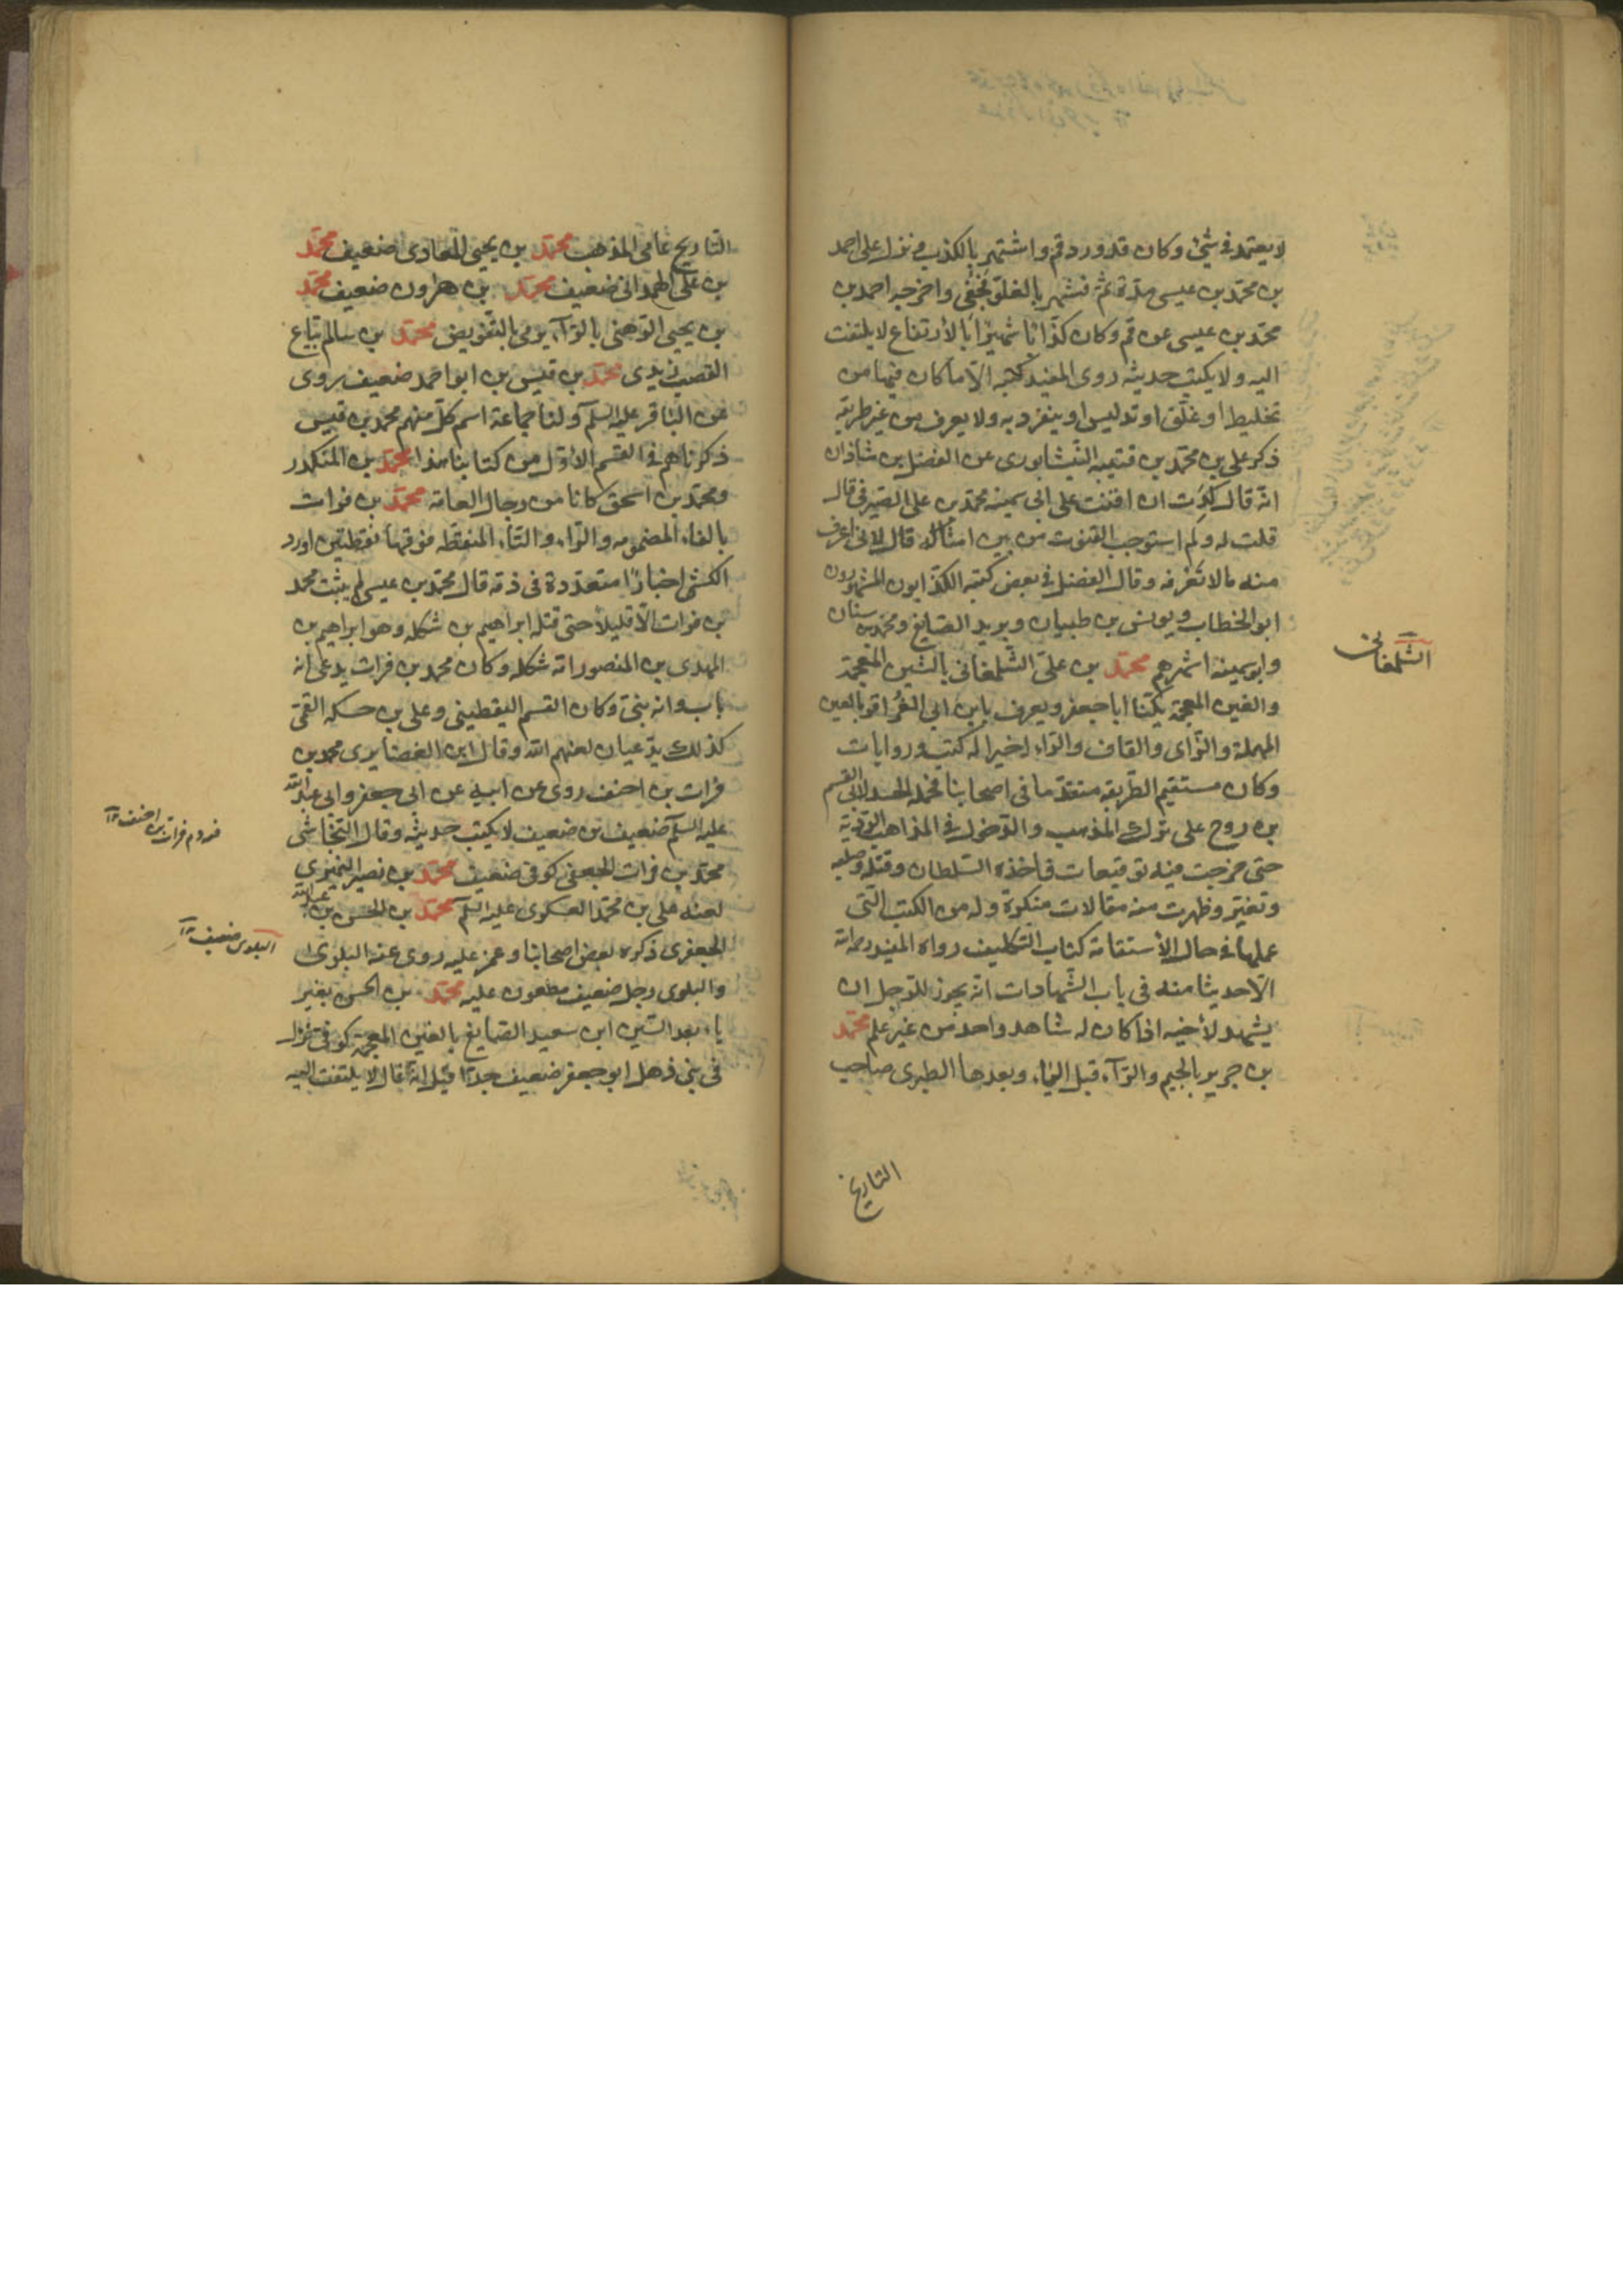 لا يعتمد في شئ وكان قد ورد قم واشتهر بالكذب ونزل على احمد
بن محمد بن عيسى مدة ثم تشهر بالغلو فخفى واخرجه احمد بن
محمد بن عيسى عن قم وكان كذابا شهيرا بالارتفاع لا يلتفت
اليه ولا يكتب حديثه روى المفيد كتبه الا ما كان فيها من
تخليط او غلو او تدليس او ينفرد به ولا يعرف من غير طريقه
ذكر علي بن محمد بن قتيبه النيشابورى عن الفضل بن شاذان
انه قال كدت ان اقنت على ابى سمينه محمد بن على الصيرفى قال
قلت له ولم استوجب القنوت من بين امثاله قال لانى اعرف
منه ما لا تعرفه وقال الفضل في بعض كتبه الكذابون المشهورون
ابو الخطاب ويونس بن ظبيان ويريد الصايغ ومحمد بن سنان
وابو سمينه اشهرهم محمد بن على الشلمغانى بالشين المعجمة
والغين المعجمة يكنا ابا جعفر ويعرف بابن ابى العزاقر بالعين
المهملة والزاى والقاف والراء اخيرا له كتب وروايات
وكان مستقيم الطريقه متقدما فى اصحابنا فحمله الحسد لابى القسم
بن روح على ترك المذهب والدخول في المذاهب الردية
حتى خرجت فيه توقيعات فاخذه السلطان وقتله وصلبه
وتغير وظهرت منه مقالات منكرة وله من الكتب التى
عملها فى حال الاستقامة كتاب التكليف رواه المفيد رحمه الله
الا حديثا منه فى باب الشهادات انه يجوز للرجل ان
يشهد لاخيه اذا كان له شاهد واحد من غير علم محمد
بن جرير بالجيم والراء قبل الياء وبعدها الطبرى صاحب
التاريخ
الشلمغانى
التاريخ عامى المذهب محمد بن يحيى المعاذى ضعيف محمد
بن على الهمدانى ضعيف محمد بن هرون ضعيف محمد
بن يحيى الرهنى بالراء يرمى بالتفويض محمد بن سالم بياع
القصب زيدى محمد بن قيس بن ابو احمد ضعيف روى
عن الباقر عليه السلم ولنا جماعة اسم كل منهم محمد بن قيس
ذكرناهم فى القسم الاول من كتابنا هذا محمد بن المنكدر
ومحمد بن اسحق كانا من رجال العامة محمد بن فرات
بالفاء المضمومه والراء والتاء المنقطه فوقها نقطتين اورد
الكشى اخبارا متعددة فى ذمه قال محمد بن عيسى لم يثبت محمد
بن فرات الا قليلا حتى قتله ابراهيم بن شكله وهو ابراهيم بن
المهدى بن المنصور امه شكله وكان محمد بن فرات يدعى انه
باب وانه بنى وكان القسم اليقطينى وعلى بن حسكه القمى
كذلك يدعيان لعنهم الله وقال ابن الغضايرى محمد بن
فرات بن احنف روى عن ابيه عن ابى جعفر وابى عبد الله
عليه السلم ضعيف بن ضعيف لا يكتب حديثه وقال النجاشى
محمد بن فرات الجعفى كوفى ضعيف محمد بن نصير النميرى
لعنه على بن محمد العسكرى عليه السلم محمد بن الحسن بن عبد الله
الجعفرى ذكره بعض اصحابنا وغمز عليه روى عنه البلوى
والبلوى رجل ضعيف مطعون عليه محمد بن الحسن بغير
ياء بعد السين ابن سعيد الصايغ بالغين المعجمة كوفى نزل
فى بنى ذهل ابو جعفر ضعيف جدا قيل انه غال لا يلتفت اليه
البلوى ضعيف